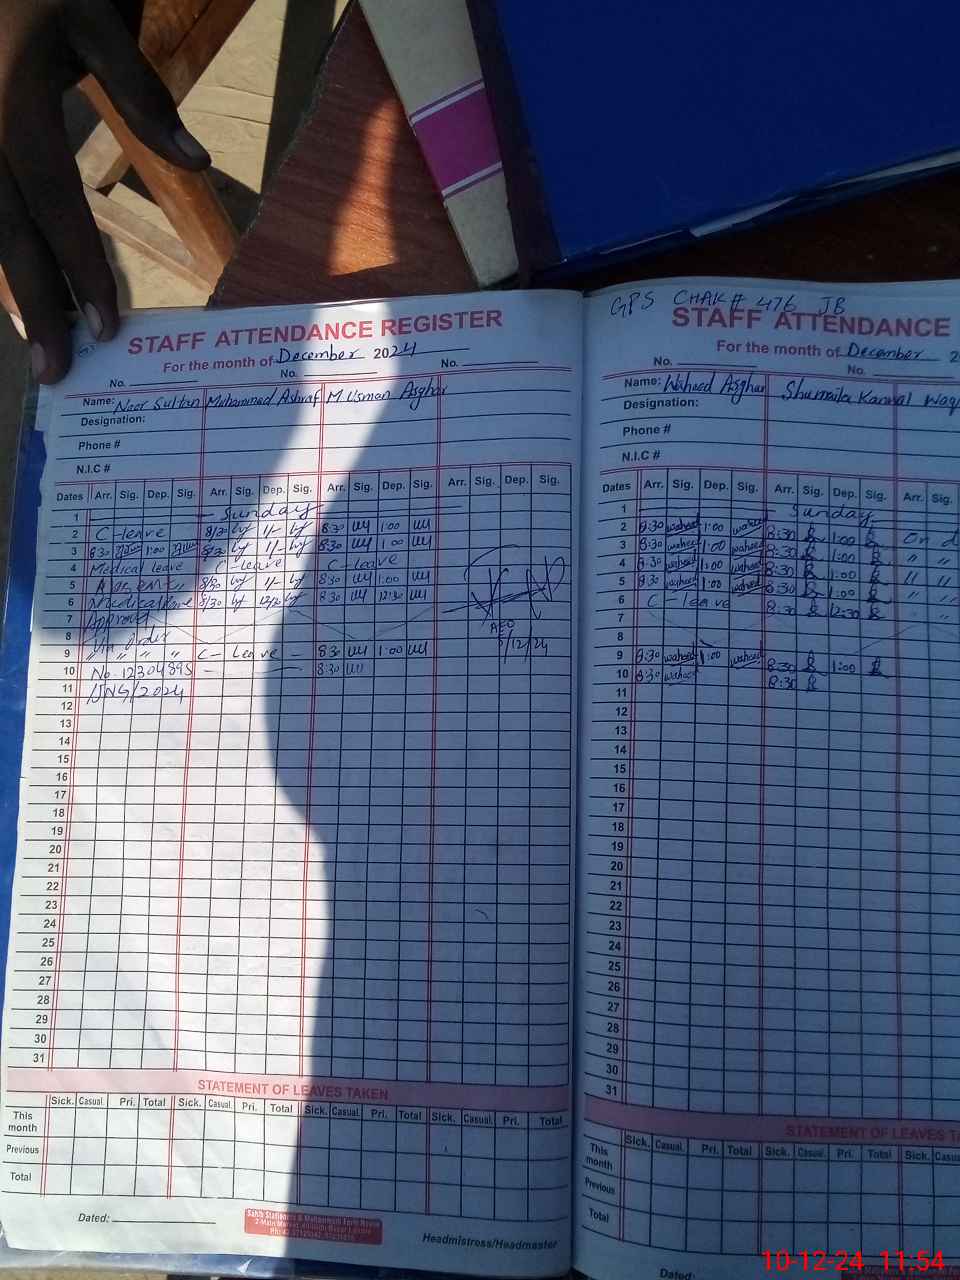 GPS CHAK# 476 JB
STAFF ATTENDANCE REGISTER
For the month of December 2024
No. No. No.
Name: Noor Sultan Muhammad Ashraf M Usman Asghar
Designation:
Phone #
N.I.C #
Dates Arr. Sig. Dep. Sig. Arr. Sig. Dep. Sig. Arr. Sig. Dep. Sig. Arr. Sig. Dep. Sig.
1 Sunday
2 C-leave 8/30 1/- 8:30 1:00
3 8:30 1:00 8/30 1/- 8:30 1:00
4 Medical leave C-leave C-leave
5 8/30 1/- 8:30 1:00
6 Medical leave 8/30 12/30 8:30 12:30
7 Approved
8 Via Order
9 " " " " C- Leave - 8:30 1:00
10 No. 12304895 8:30
11 UNG/2024
AEO
6/12/24
12
13
14
15
16
17
18
19
20
21
22
23
24
25
26
27
28
29
30
31
STATEMENT OF LEAVES TAKEN
Sick. Casual. Pri. Total Sick. Casual. Pri. Total Sick. Casual. Pri. Total Sick. Casual. Pri. Total
This month
Previous
Total
Dated:
Headmistress/Headmaster
STAFF ATTENDANCE
For the month of December
No. No.
Name: Waheed Asghar Shumaila Kanwal
Designation:
Phone #
N.I.C #
Dates Arr. Sig. Dep. Sig. Arr. Sig. Dep. Sig. Arr. Sig.
1 Sunday
2 8:30 waheed 1:00 waheed 8:30 1:00 On
3 8:30 waheed 1:00 waheed 8:30 1:00 " "
4 8:30 waheed 1:00 waheed 8:30 1:00 " "
5 8:30 waheed 1:00 waheed 8:30 1:00 " "
6 C-leave 8:30 12:30
7
8
9 8:30 waheed 1:00 waheed 8:30 1:00
10 8:30 waheed 8:30
11
12
13
14
15
16
17
18
19
20
21
22
23
24
25
26
27
28
29
30
31
STATEMENT OF LEAVES
Sick. Casual. Pri. Total Sick. Casual. Pri. Total Sick.
This month
Previous
Total
Dated:
10-12-24 11:54